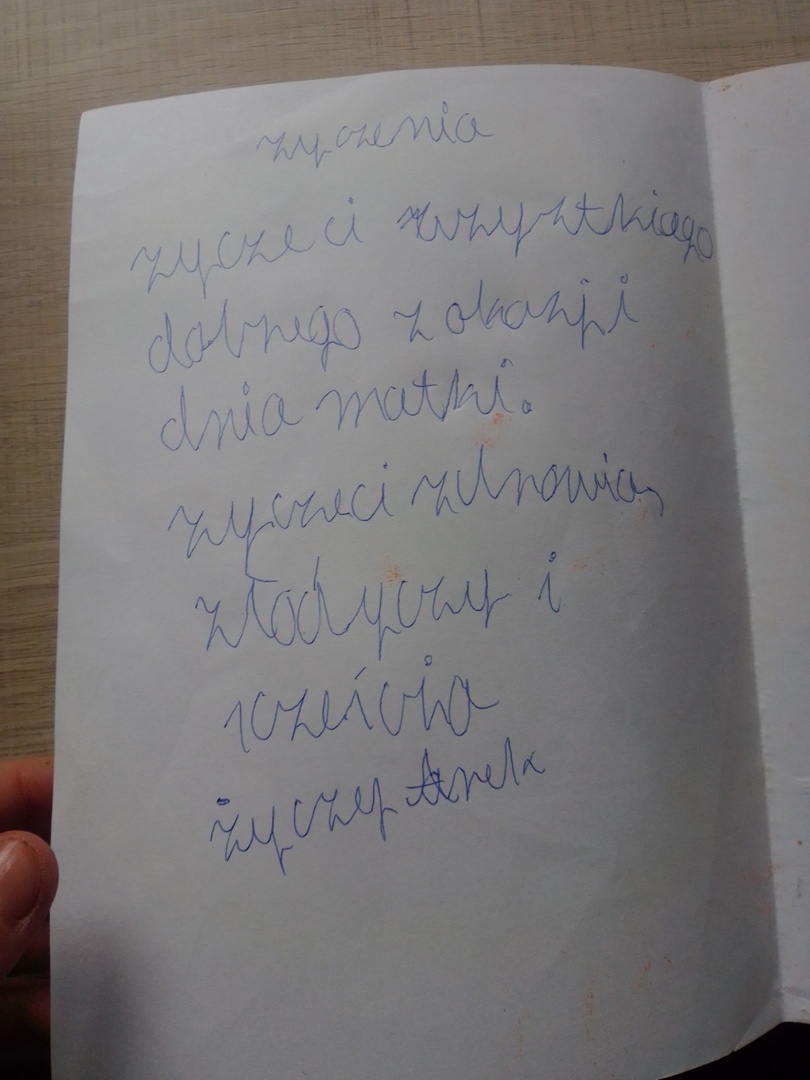 zyczenia
zycze ci wszystkiego
dobrego z okazji
dnia matki.
zyczeci zdrowia,
złodyczy i
sczeícia
życzep Arek